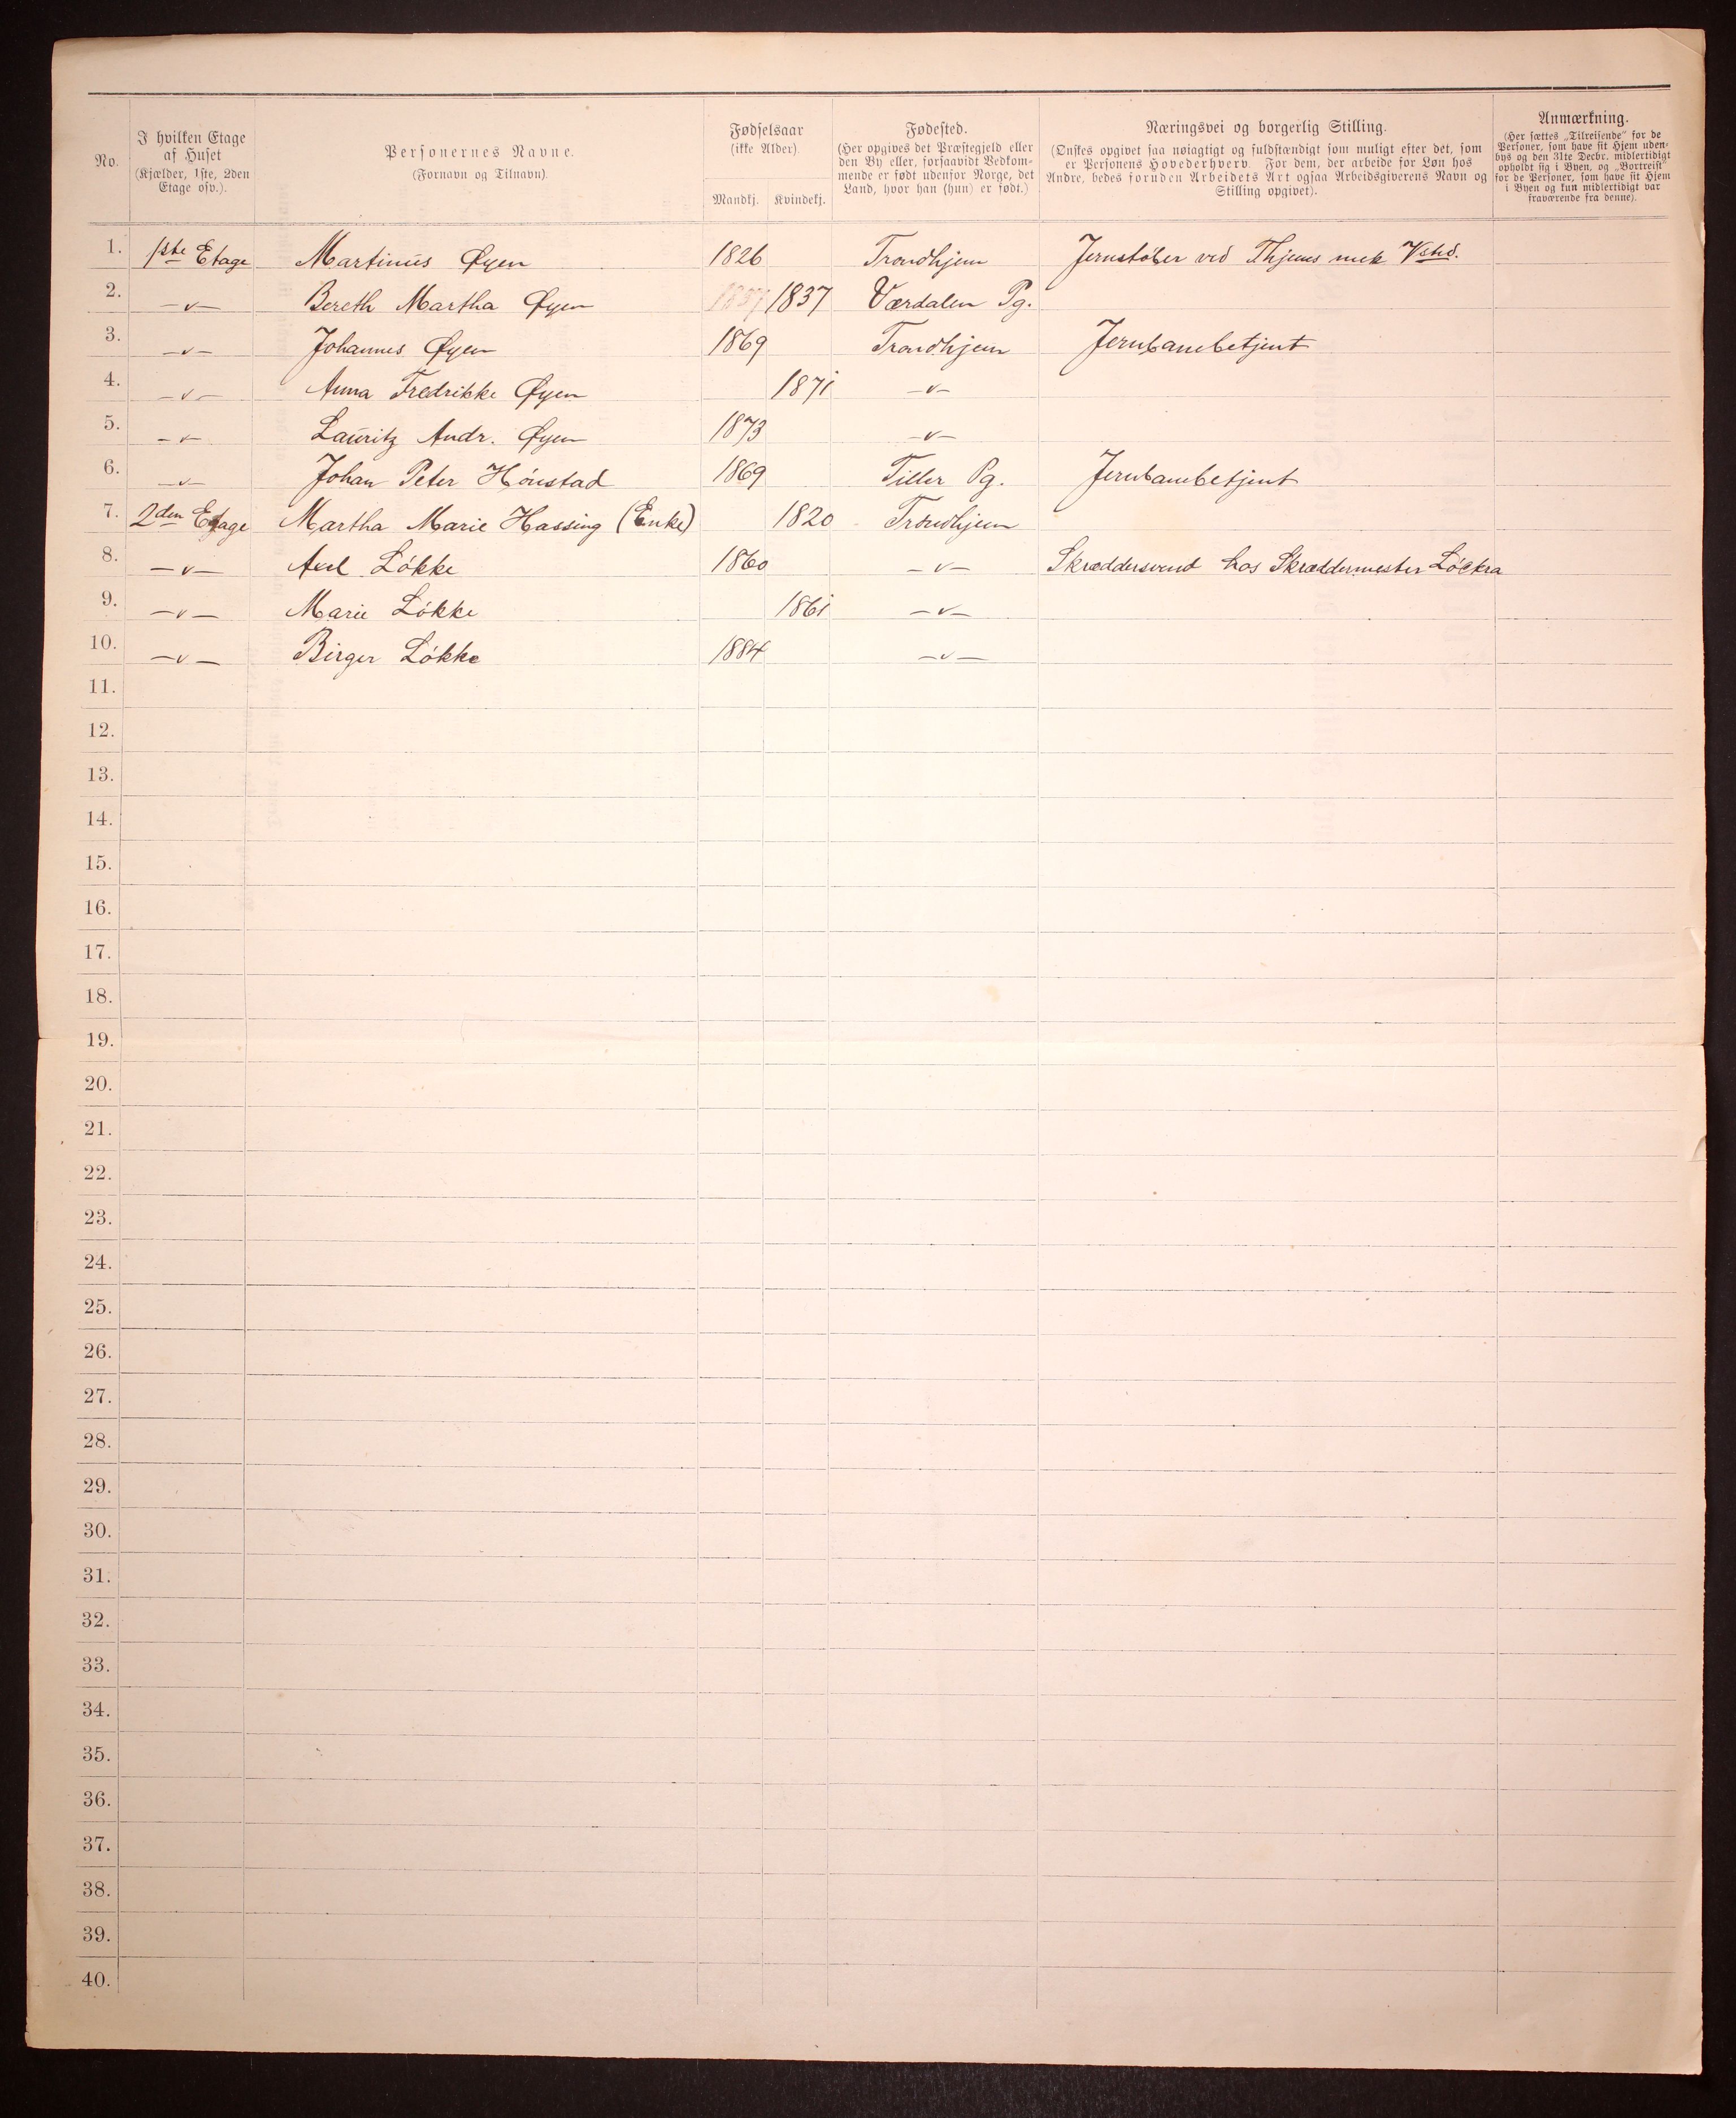 No.
I hvilken Etage
af Huset
(Kjælder, 1ste, 2den
Etage osv.).
Personernes Navne.
(Fornavn og Tilnavn).
Fødselsaar
(ikke Alder).
Mandkj. Kvindekj.
Fødested.
(Her opgives det Præstegjeld eller
den By eller, forsaavidt Vedkom-
mende er født udenfor Norge, det
Land, hvor han (hun) er født.)
Næringsvei og borgerlig Stilling.
(Ønskes opgivet saa nøiagtigt og fuldstændigt som muligt efter det, som
er Personens Hovederhverv. For dem, der arbeide for Løn hos
Andre, bedes foruden Arbeidets Art ogsaa Arbeidsgiverens Navn og
Stilling opgivet).
Anmærkning.
(Her sættes „Tilreisende" for de
Personer, som have sit Hjem uden-
bys og den 31te Decbr. midlertidigt
opholdt sig i Byen, og „Bortreist"
for de Personer, som have sit Hjem
i Byen og kun midlertidigt var
fraværende fra denne).
1. 1ste Etage Martinus Øyen 1826 Trondhjem Jernstøber ved Thjems mek Vsted.
2. -v- Bereth Martha Øyen 1837 1837 Værdalen Pg.
3. -v- Johannes Øyen 1869 Trondhjem Jernbanebetjent
4. -v- Anna Fredrikke Øyen 1871 -v-
5. -v- Lauritz Andr. Øyen 1873 -v-
6. -v- Johan Peter Hónstad 1869 Tiller Pg. Jernbanebetjent
7. 2den Etage Martha Marie Hassing (Enke) 1820 Trondhjem
8. -v- Axel Lókke 1860 -v- Skræddersvend hos Skræddermester Löckra
9. -v- Marie Lókke 1861 -v-
10. -v- Birger Lókke 1884 -v-
11.
12.
13.
14.
15.
16.
17.
18.
19.
20.
21.
22.
23.
24.
25.
26.
27.
28.
29.
30.
31.
32.
33.
34.
35.
36.
37.
38.
39.
40.